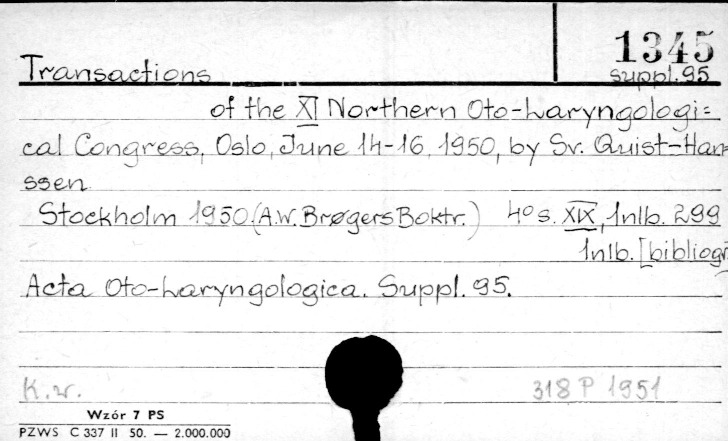 1345
suppl. 95
Transactions
of the XI Northern Oto-Laryngologi=
cal Congress, Oslo, June 14-16, 1950, by Sv. Quist-Han=
ssen
Stockholm 1950 (A.W. Brøgers Boktr.) 4º s. XIX, 1nlb. 299
1nlb. [bibliogr
Acta Oto-Laryngologica. Suppl. 95.
K.w. 318 P 1951
Wzór 7 PS
PZWS C 337 II 50. — 2.000.000